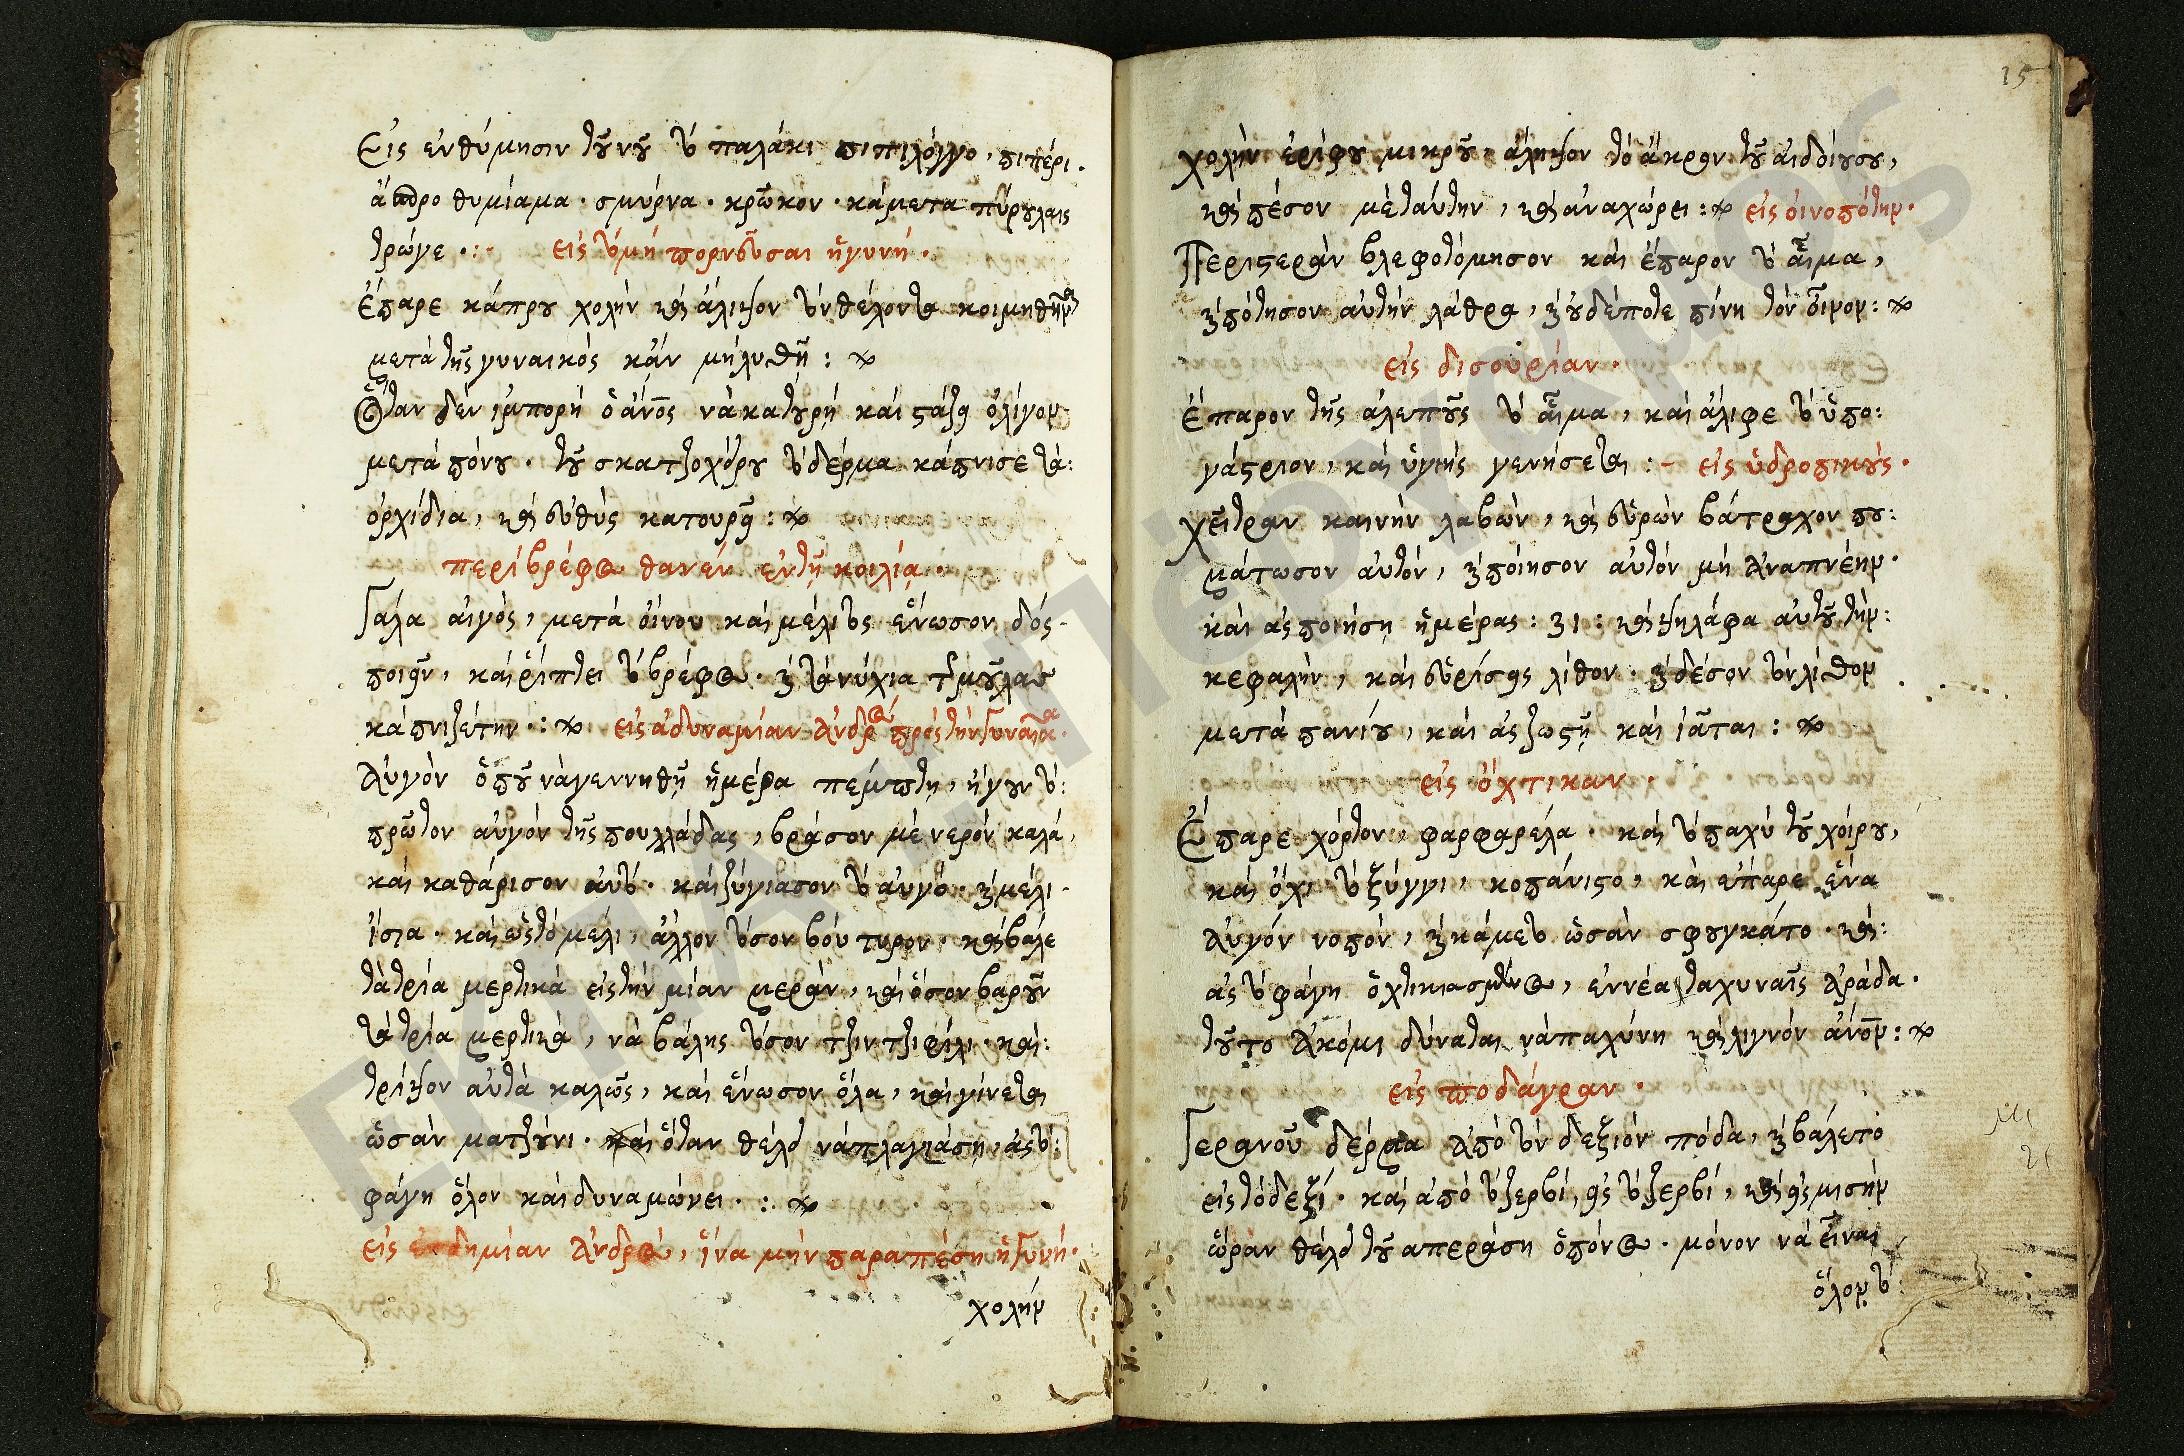 Εἰς ἐνθύμησιν τοῦ νοῦ τὸ παλάκι πιπιλόγγο, πιπέρι.
ἄσπρο θυμίαμα · σμύρνα · κρῶκον · κάμετα πύρουλαις
τρώγε · :- εἰς τὸ μή πορνεῦσαι ἡ γυνή ·
ἔπαρε κάπρου χολὴν καὶ ἄλιψον τὸν θέλοντα κοιμηθῆναι
μετὰ τῆς γυναικός κἄν μὴ λυθῇ :
Ὅταν δέν ἰμπορῇ ὁ ἄνος νὰ κατουρῇ καὶ στάζῃ ὀλίγον
μετά πόνου · τοῦ σκατζοχόρου τὸ δέρμα κάπνισε τὰ:
ὀρχίδια, καὶ εὐθὺς κατουρᾷ :
περὶ βρέφος θανὲν ἐν τῇ κοιλίᾳ ·
Γάλα αἰγὸς, μετὰ οἴνου καὶ μέλιτος ἕνωσον, δός
ποιεῖν, καὶ ῥίπτει τὸ βρέφος · καὶ τὰ νύχια τῆς μούλας
κάπνιζέ την · : εἰς ἀδυναμίαν ἀνδρὸς πρὸς τὴν γυναῖκα ·
Αὐγὸν ὁποῦ νὰ γεννηθῇ ἡμέρα πέμπτη, ἤγουν τὸ:
πρῶτον αὐγόν τῆς πουλλάδας, βράσον μὲ νερόν καλά,
καὶ καθάρισον αὐτὸ · καὶ ζύγιασον τὸ αὐγό · καὶ μέλι
ἴσια · καὶ ὡς τὸ μέλι, ἄλλον τόσον βούτυρον · καὶ βάλε
τὰ τρία μερτικά εἰς τὴν μίαν μεράν, καὶ ὅσον βαροῦν
τὰ τρία μερτικά, νὰ βάλῃς τόσον τζιντζιφίλι · καὶ:
τρίψον αὐτὰ καλῶς, καὶ ἕνωσον ὅλα, καὶ γίνεται
ὡσὰν ματζούνι · καὶ ὅταν θέλει νὰ πλαγιάσῃ, ἂς τὸ:
φάγῃ ὅλον καὶ δυναμώνει · :
εἰς ἐκδημίαν ἀνδρὸς, ἵνα μὴν παραπέσῃ ἡ γυνή ·
χολὴν
15
χολὴν ἐρίφου μικροῦ, ἄλειψον τὸ ἄκρον τοῦ αἰδδίου σου,
καὶ πέσον μὲ ταύτην, καὶ ἀναχώρει : εἰς οἰνοπότην ·
Περιστερὰν βλεφοτόμησον καὶ ἔπαρον τὸ αἷμα,
καὶ πότησον αὐτὴν λάθρα, καὶ οὐδέποτε πίνῃ τὸν οἶνον :
εἰς δισουρίαν ·
Ἔπαρον τῆς ἀλεποῦς τὸ αἷμα, καὶ ἄλιφε τὸ ὑπο:
γάστριον, καὶ ὑγιής γενήσεται :- εἰς ὑδροπικούς ·
χεῖτραν καινὴν λαβὼν, καὶ εὑρὼν βάτραχον πο:
μάτωσον αὐτόν, καὶ ποίησον αὐτόν μὴ ἀναπνέην ·
καὶ ἂς ποιήσῃ ἡμέρας : 31 : καὶ ψηλάφα αὐτοῦ τὴν:
κεφαλὴν, καὶ εὑρίσῃς λίθον · καὶ δέσον τὸν λίθον
μετὰ πανίου, καὶ ἂς ζωστῇ καὶ ἰᾶται :
εἰς ὄχτικαν ·
Ἔπαρε χόρτον, φαρφαρέλα · καὶ τὸ παχύ τοῦ χοίρου,
καὶ ὄχι τὸ ξύγγι, κοπάνιστο, καὶ ἐπάρε ἕνα
αὐγόν νοπόν, καὶ κάμετο ὡσὰν σφουγκάτο · καὶ:
ἂς τὸ φάγῃ ὁ χτικιασμένος, ἐννέα ταχυναῖς ἀράδα ·
τοῦτο ἀκόμι δύναται νὰ παχύνῃ καὶ λιγνόν ἄνον :
εἰς ποδάγραν ·
Γερανοῦ δέρμα ἀπὸ τὸν δεξιόν πόδα, καὶ βάλετο
εἰς τὸ δεξί · καὶ ἀπὸ τὸ ζερβί, εἰς τὸ ζερβί, καὶ εἰς μισὴν
ὥραν θέλει τοῦ ἀπεράσῃ ὁ πόνος · μόνον νὰ εἶναι
ὅλον τὸ